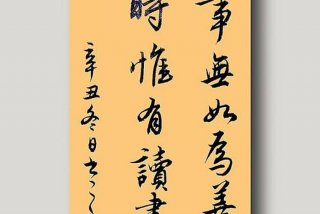 事無如為善
時惟有讀書
辛丑冬日書